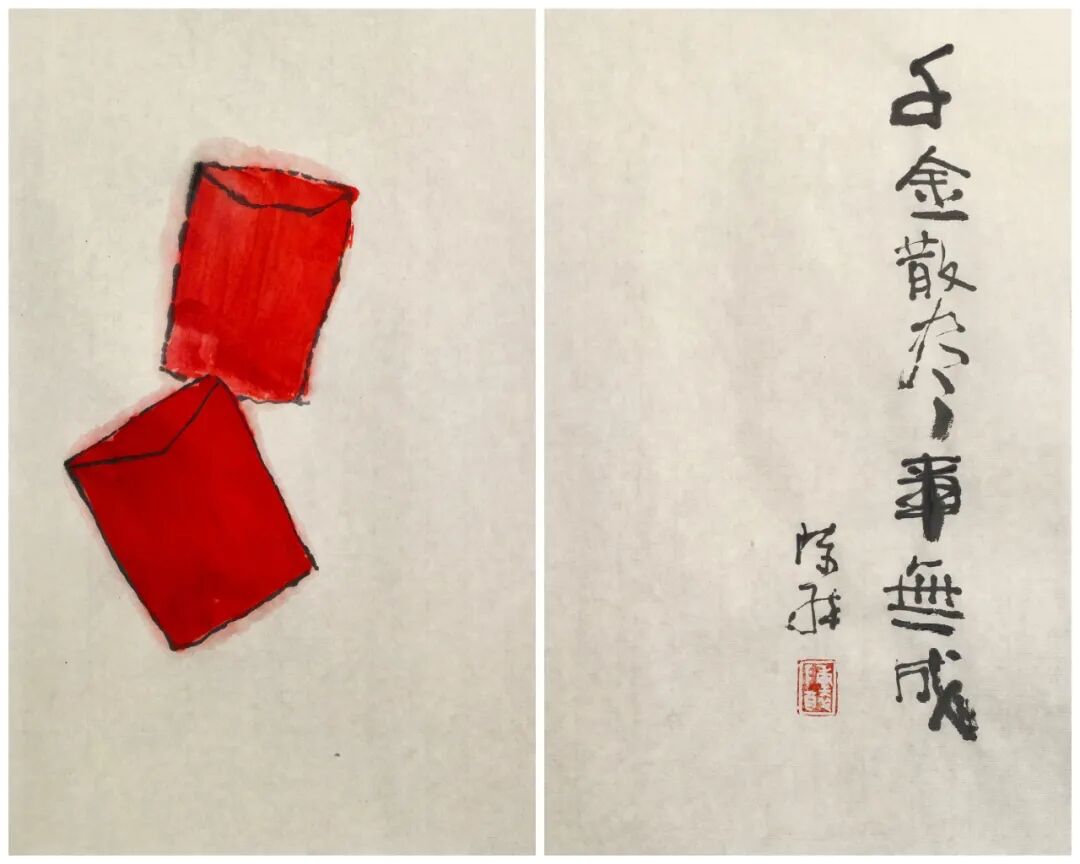 千金散尽一事無成